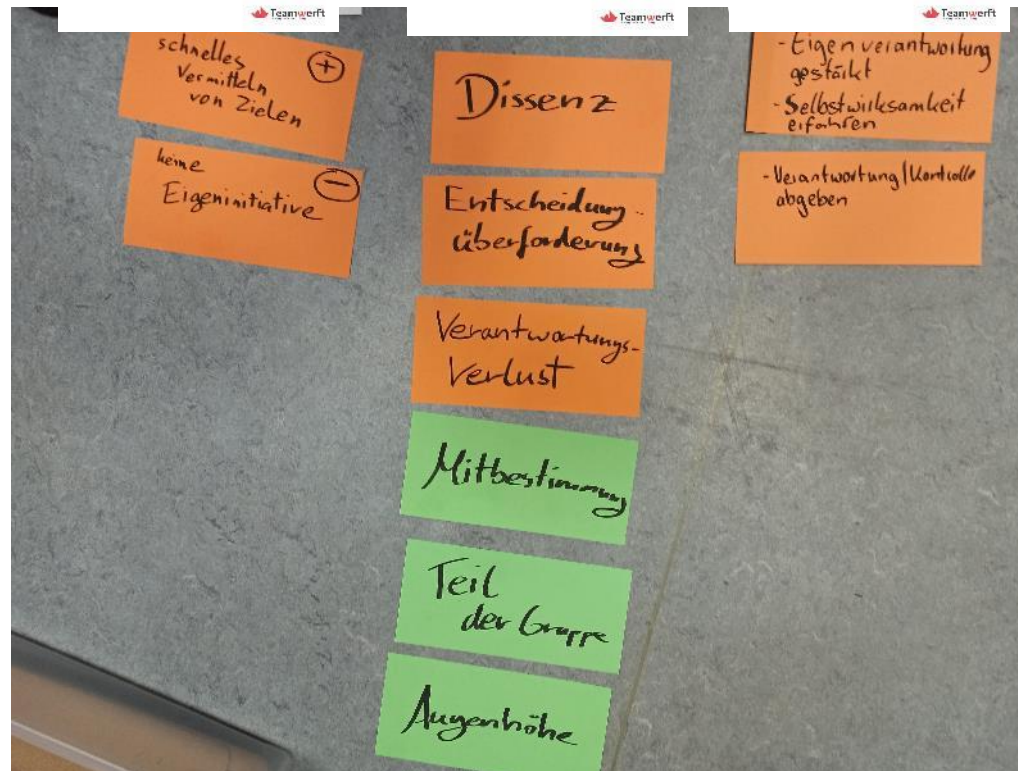 Teamwerft
schnelles
Vermitteln
von Zielen
+
keine
Eigeninitiative
−
Teamwerft
Dissenz
Entscheidung-
überforderung
Verantwortungs-
Verlust
Mitbestimmung
Teil
der Gruppe
Augenhöhe
Teamwerft
- Eigenverantwortung
gestärkt
- Selbstwirksamkeit
erfahren
- Verantwortung/Kontrolle
abgeben